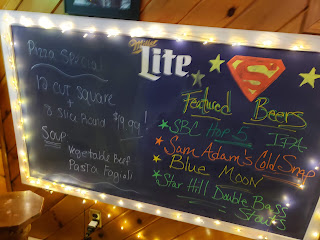 Pizza Special
12 cut square
+
8 slice Round $19.99!
Soup
Vegetable Beef
Pasta Faggioli
Miller
Lite
S
Featured Beers
SBC Hop 5 IPA
Sam Adams Cold Snap
Blue Moon
Star Hill Double Bass
Stout